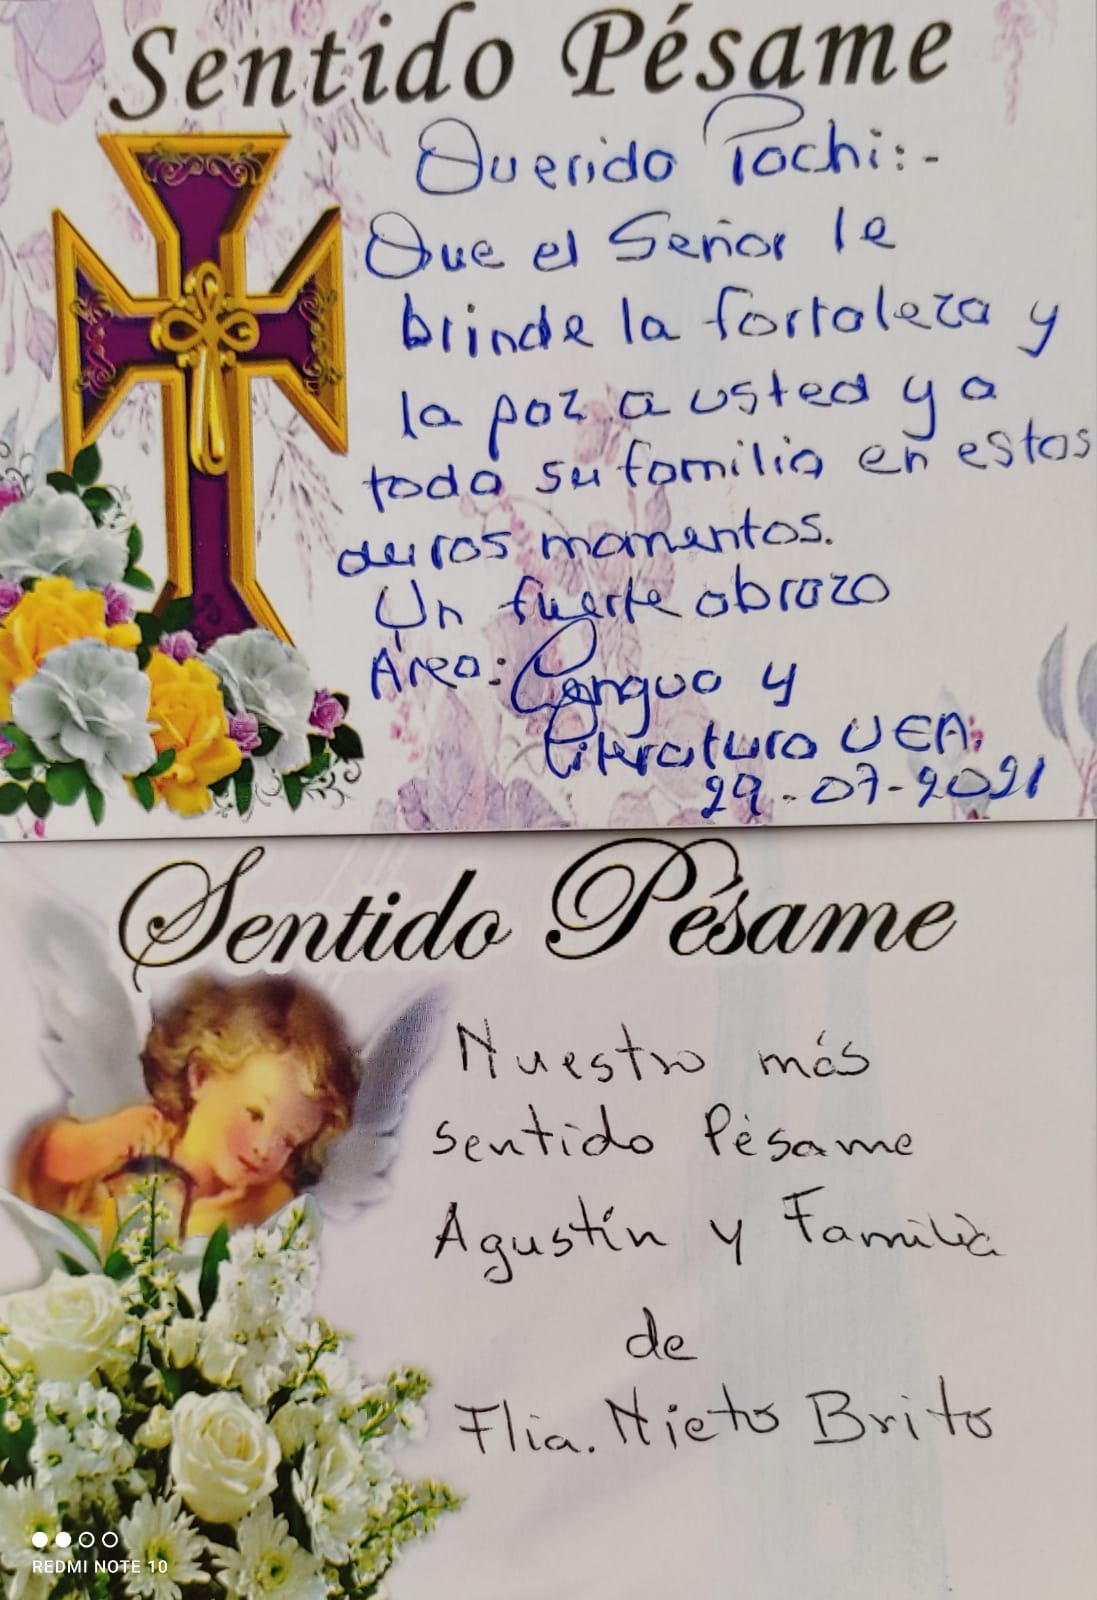 Sentido Pésame
Querido Pochi:-
Que el Señor le
brinde la fortaleza y
la paz a usted y a
toda su familia en estos
duros momentos.
Un fuerte abrazo
Área: Lengua y
Literatura UEA.
29-07-2021
Sentido Pésame
Nuestro más
sentido Pésame
Agustín y Familia
de
Flia. Nieto Brito
REDMI NOTE 10